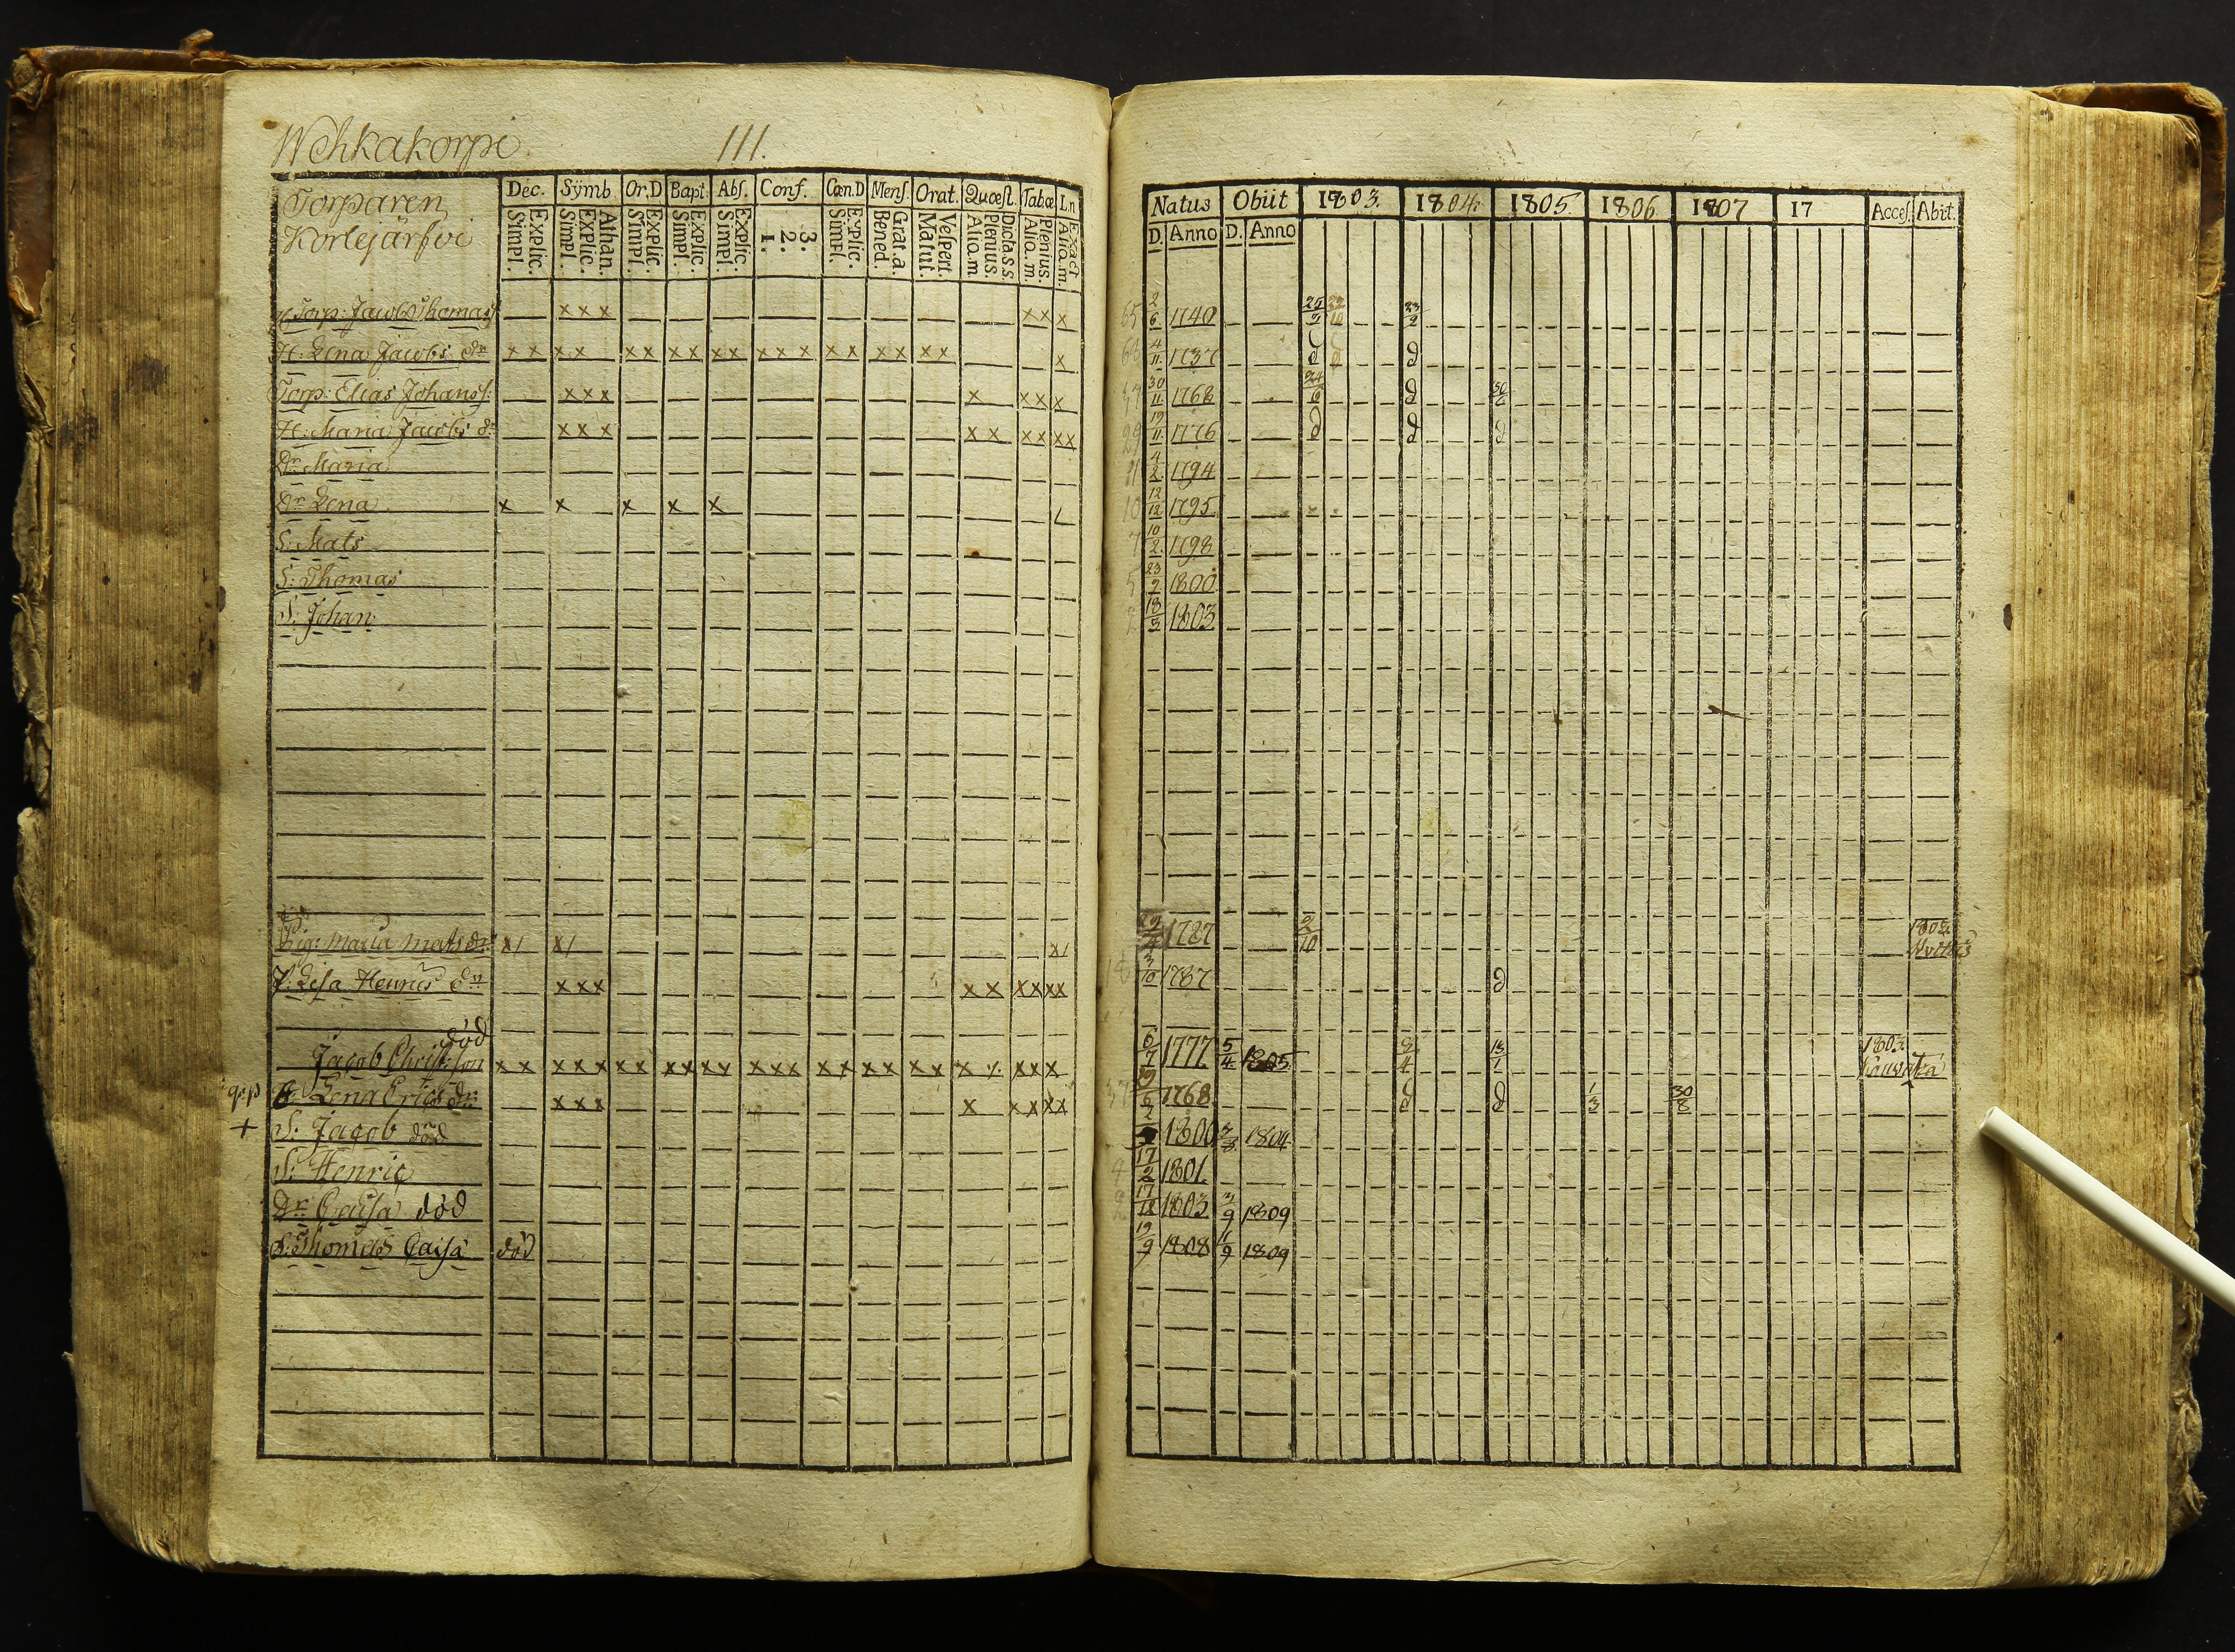 Wehkakorpi 111.
Torparen
Korlejärfvi
Dec. Symb Or.D Bapt. Abs. Conf. Cœn.D Mens. Orat. Quæst. Tabæ L.n
Explic. Simpl. Athan. Explic. Simpl. Explic. Simpl. Explic. Simpl. Explic. Simpl. 3. 2. 1. Explic. Simpl. Grat. a. Bened. Vespert. Matut. Dicta. s.s. Plenius. Aliq. m. Plenius. Aliq. m. Exact Aliq. m.
Natus Obiit 1803. 1804. 1805. 1806 1807 17 Acces. Abit.
D. Anno D. Anno
Torp: Jacob Thomass x x x x x x 65 2/6 1740 25/2 22/10 23/2
H. Lena Jacobs dr x x x x x x x x x x x x x x x x x x x x 68 4/11 1737 d d d
Torp: Elias Johanss: x x x x x x x 37 30/11 1768 24/6 d 30/6
H. Maria Jacobs dr x x x x x x x x x 29 19/11 1776 d d d
Dr Maria 11 4/2 1794
Dr Lena x x x x x 10 12/12 1795
S: Mats 7 10/2 1798
S: Thomas 5 23/2 1800
S: Johan 2 18/3 1803
Pig: Maria Mats dr x/ x/ x/ 29/4 1787 2/10 1803
P. Lisa Henrics dr x x x x x x x x x 18 3/10 1787 d
död
Jacob Christ:son x x x x x x x x x x x x x x x x x x x x x x x x x x x 6/7 1777 5/4 1805 8/4 13/1 1803
Lena Erics dr x x x x x x x x 37 1768 d d 1/3 30/8
+ S: Jacob död 1800 1804
S: Henric 4 17/2 1801
Dr Caisa död 2 17/12 1803 3/9 1809
S: Thomas Caisa död 19/9 1808 11/9 1809